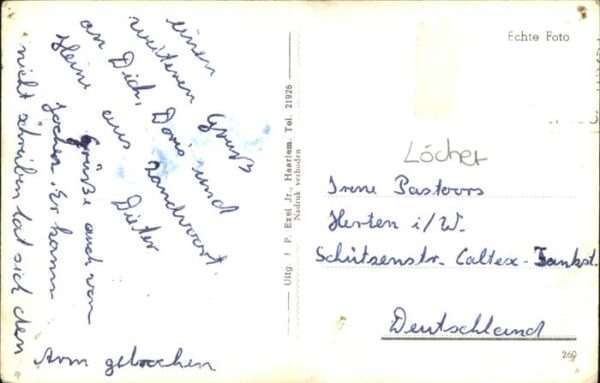 einen
weiteren Gruß
an Dich, Doris und
Heini aus Zandvoort.
Dieter
Grüße auch von
Jochen. Er kann
nicht schreiben hat sich den
Arm gebrochen
Uitg. J. P. Exel Jr., Haarlem. Tel. 21926
Nadruk verboden
Echte Foto
Löcher
Irene Pastoors
Herten i/W.
Schützenstr. Caltex-Tankst.
Deutschland
260